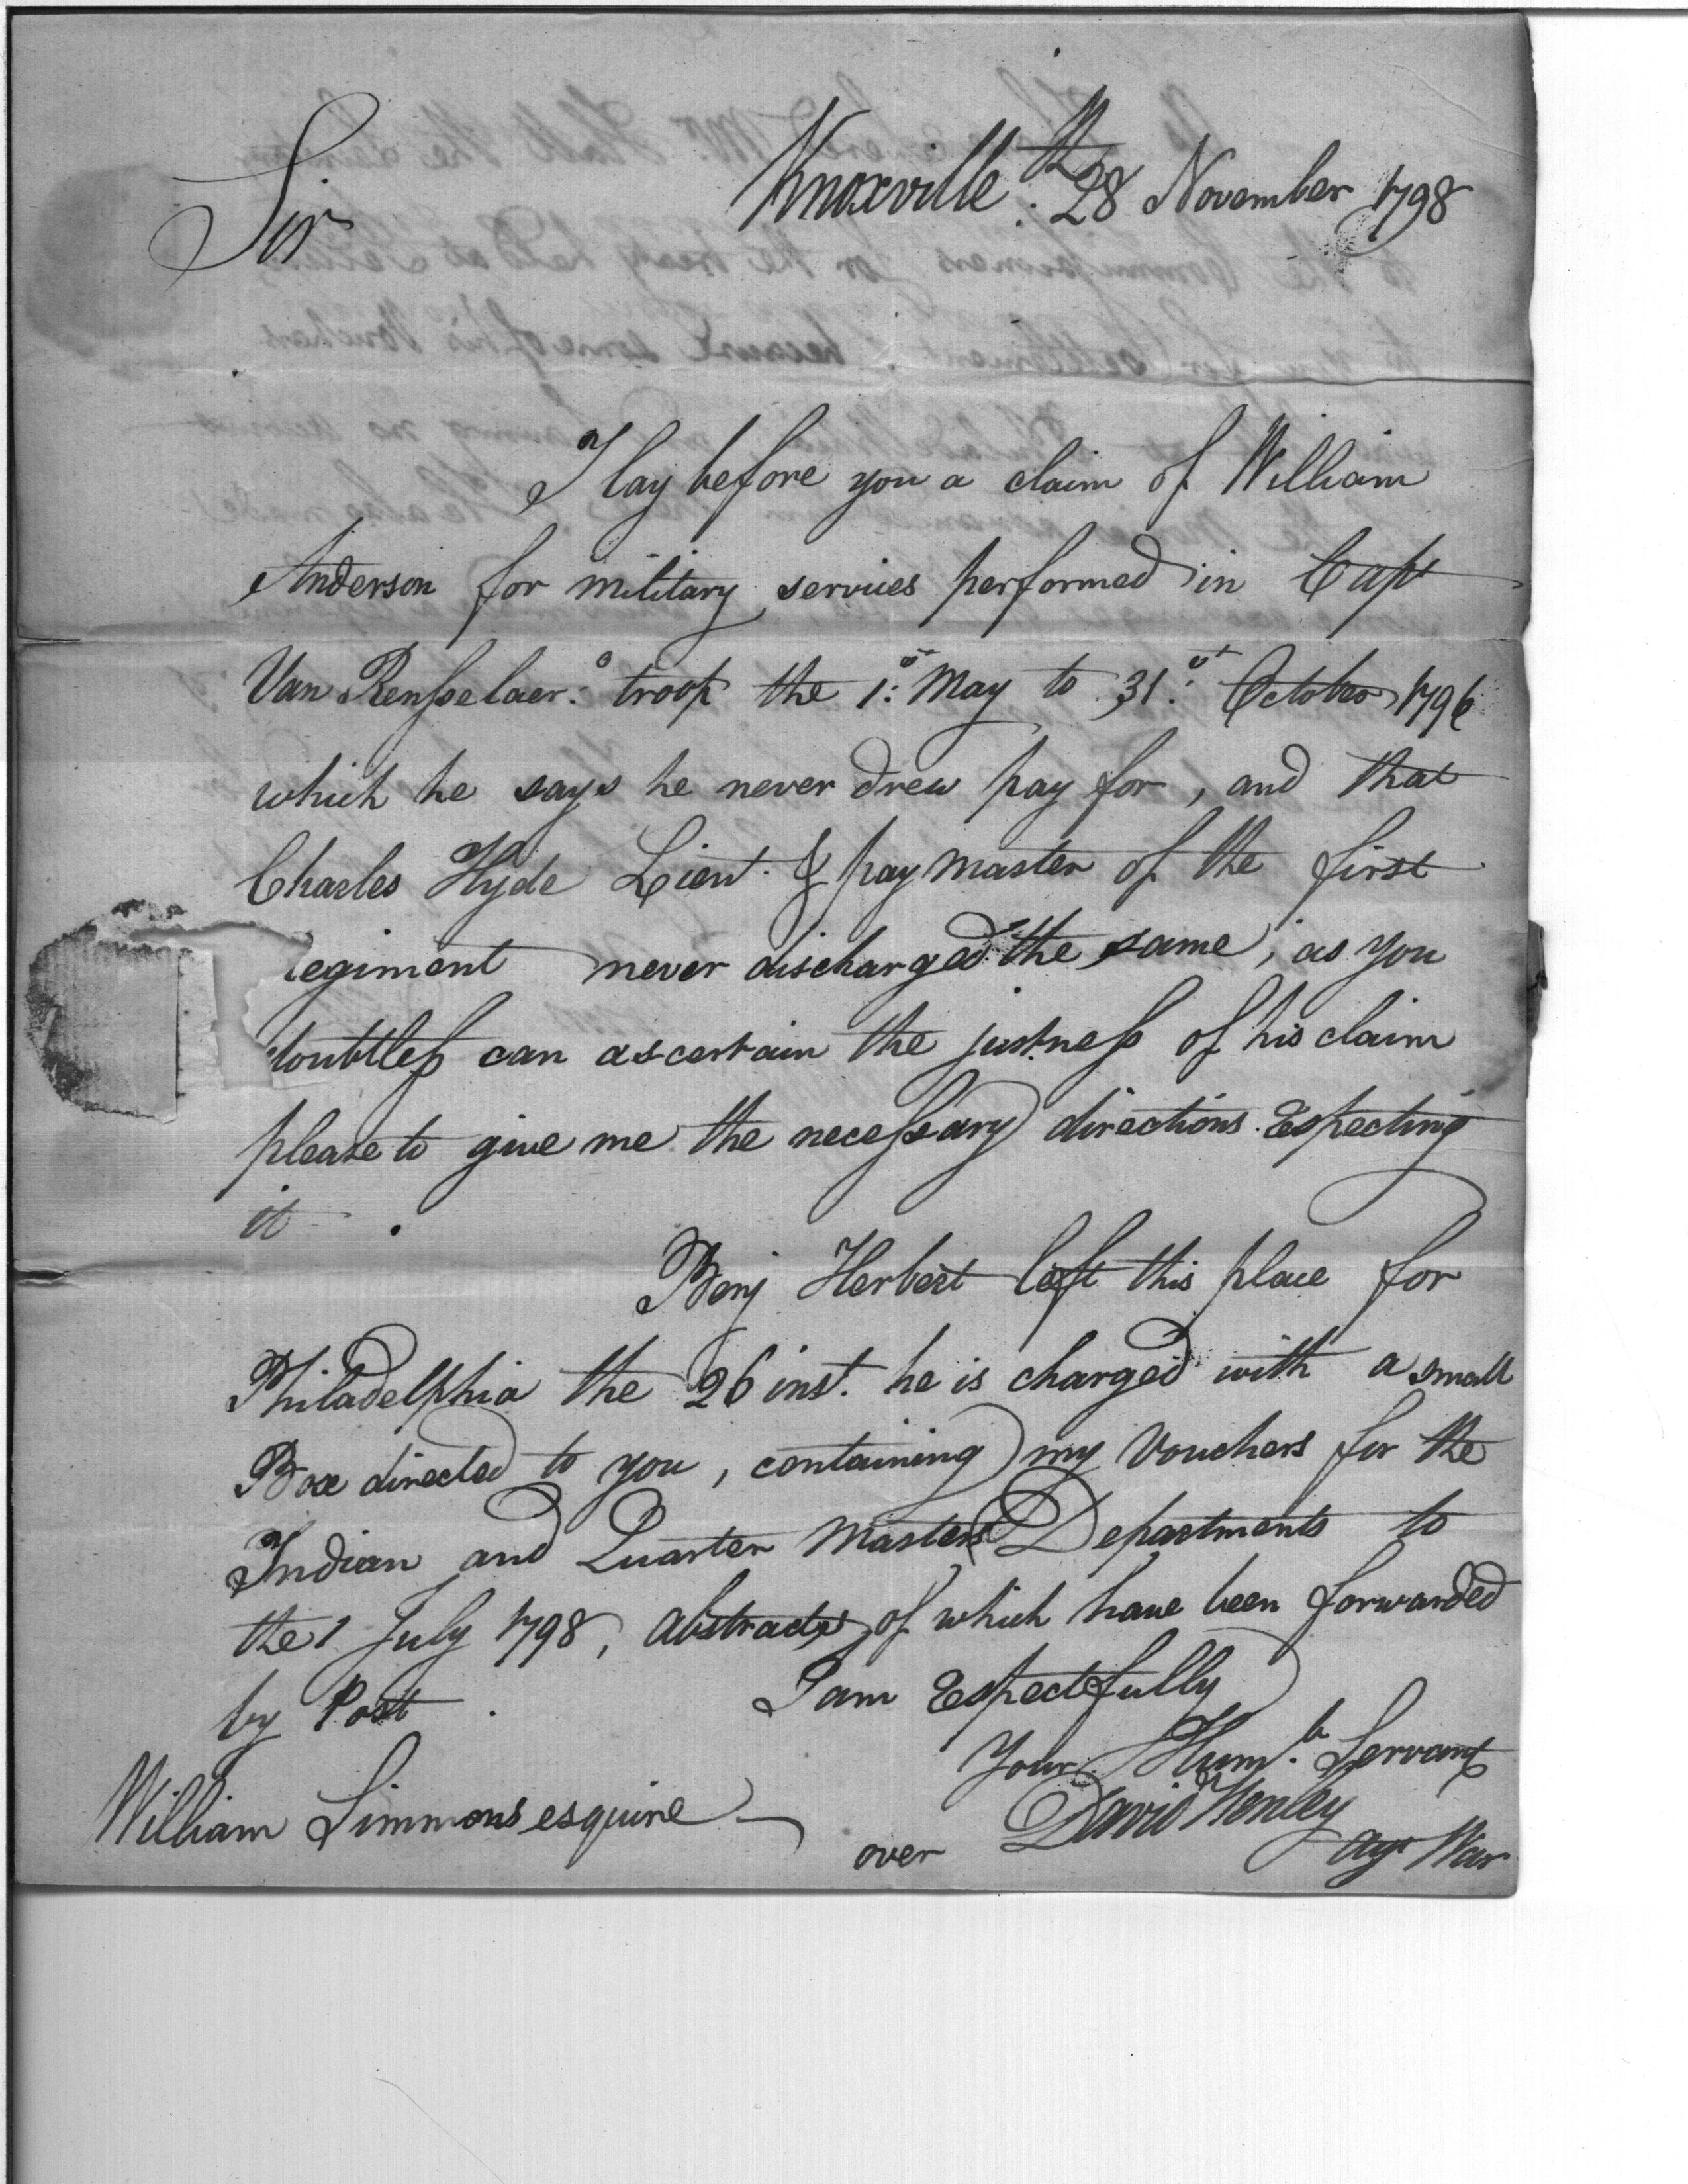 Knoxville th 28 November 1798
Sir
I lay before you a claim of William
Anderson for military services performed in Capt
Van Rensselaer.s troop the 1:st May to 31:st October 1796
which he says he never drew pay for, and that
Charles Hyde Lieut. & paymaster of the first
regiment never discharged the same; as you
doubtless can ascertain the justness of his claim
please to give me the necessary directions Especting
it.
Benj Herbert left this place for
Philadelphia the 26 inst. he is charged with a small
Box directed to you, containing my Vouchers for the
Indian and Quarter Masters Departments to
the 1 July 1798, abstracts of which have been forwarded
by Post.
I am Espectfully
Your Hum.b Servant
David Henley
William Simmons esquire
over
agt War